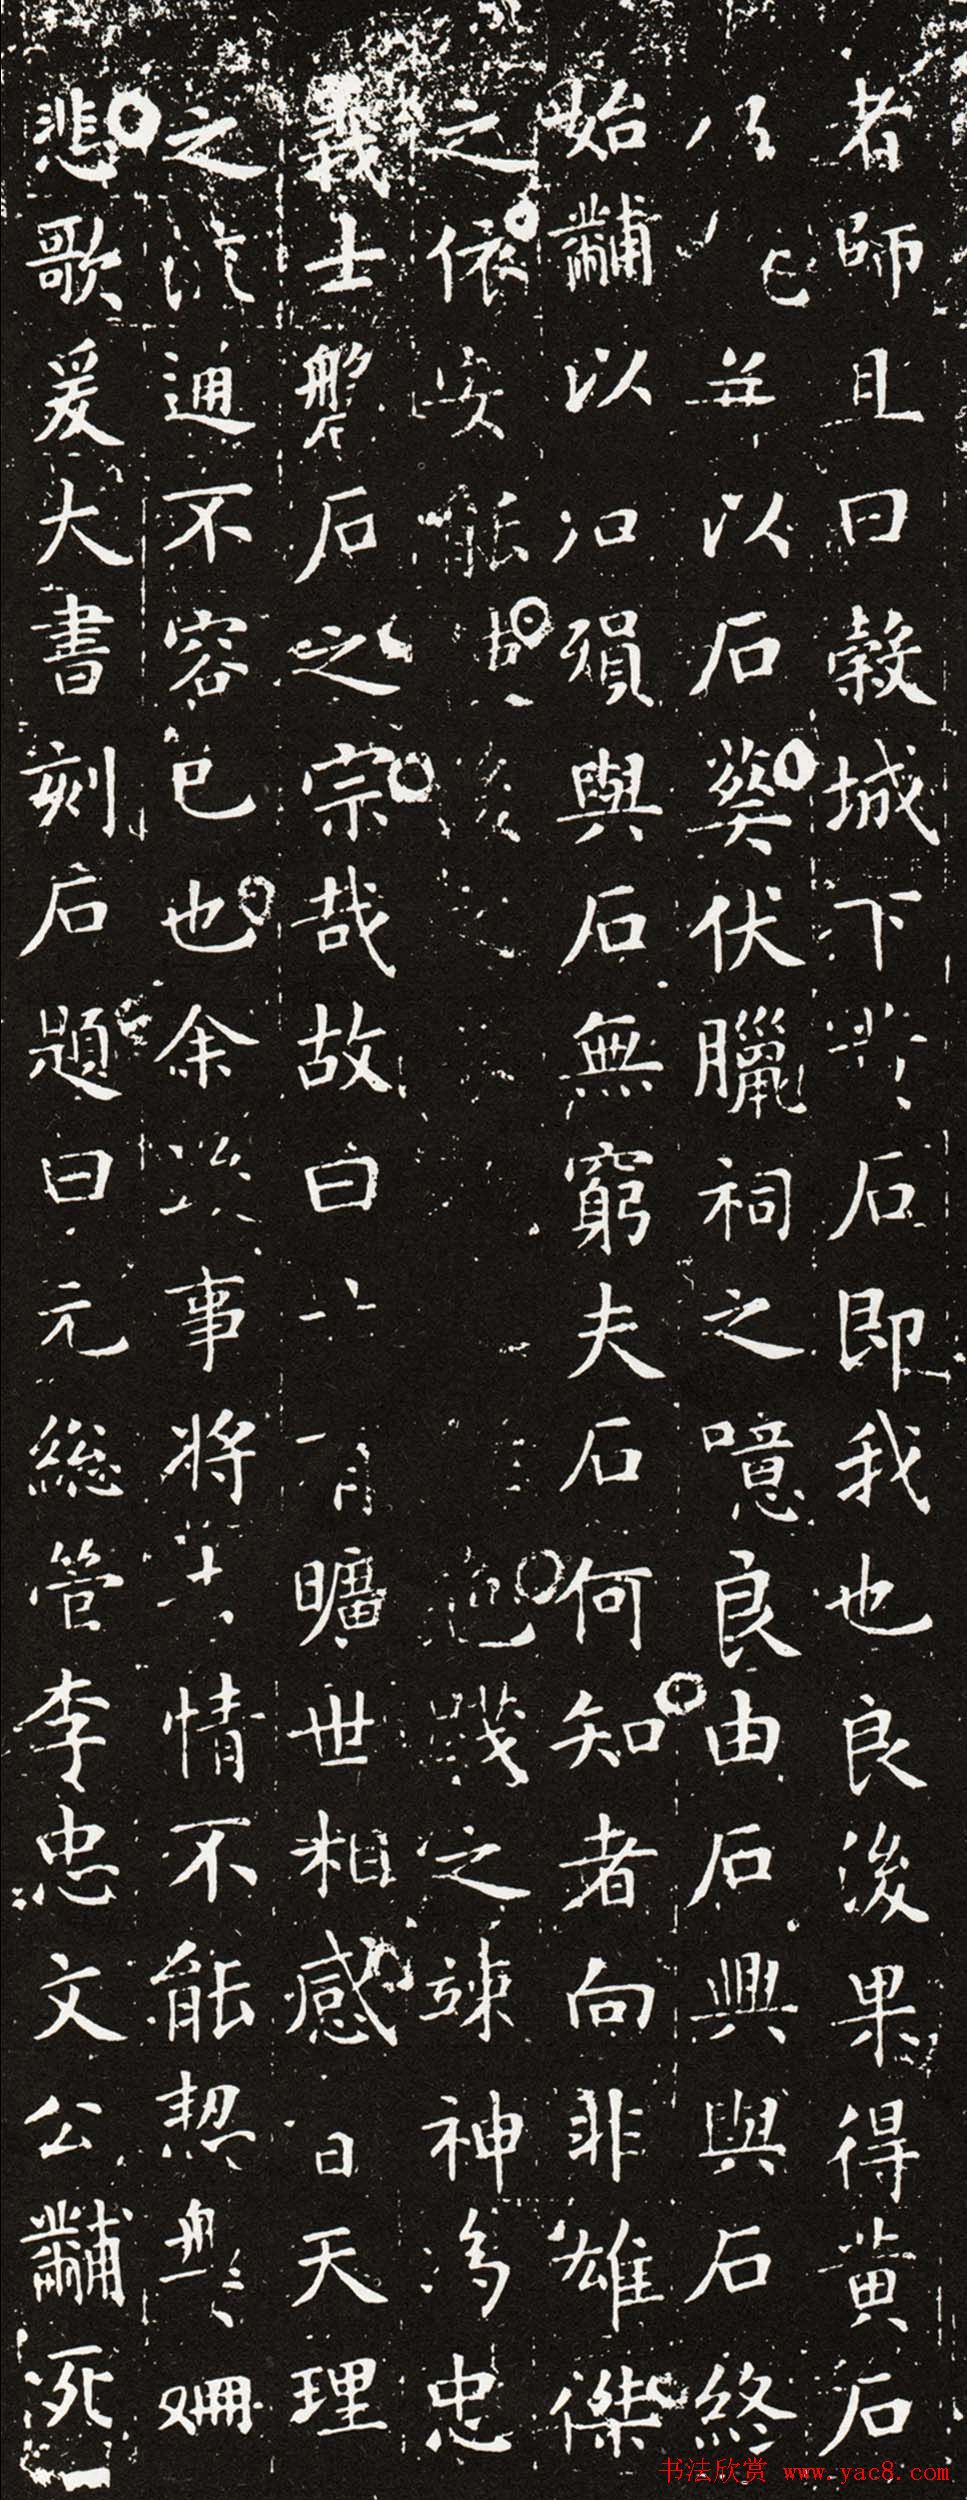 者師且曰穀城下黃石即我也良後果得黃石
以石葬伏臘祠之噫良由石興與石終
始黼以殞與石無窮夫石何知者向非雄傑
之依安能之竦神為忠
義士磐石之宗哉故曰有曠世相感曰天理
之流通不容已也余事將情不能恝
悲歌爰大書刻石題曰元總管李忠文公黼死
书法欣赏 www.yac8.com